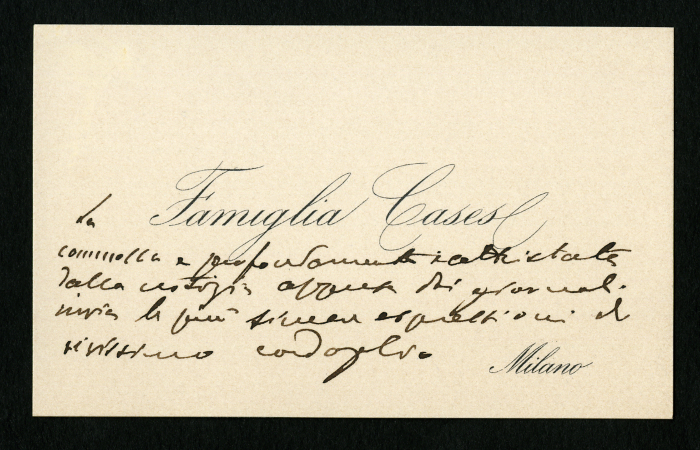 La Famiglia Cases
commossa e profondamente rattristata
dalla notizia appresa dai giornali
invia le più sincere espressioni di
vivissimo cordoglio
Milano